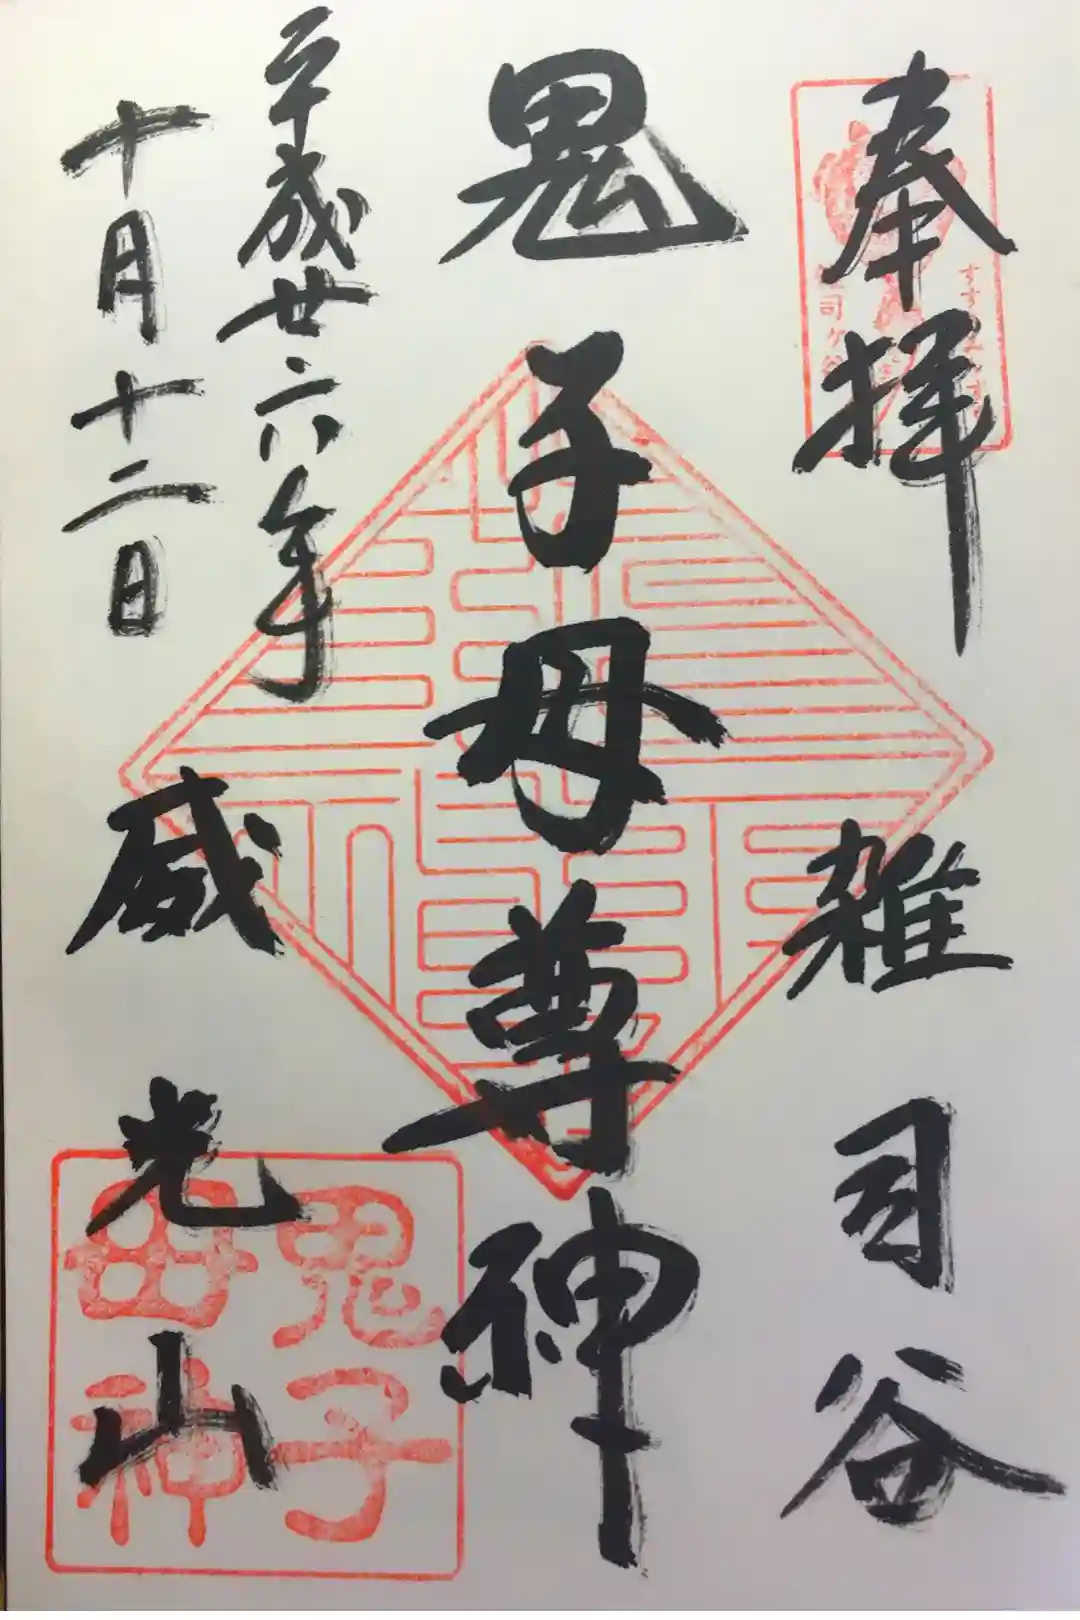 奉拝
雑司谷
鬼子母尊神
平成廿六年
十月十二日
威光山
鬼子
母神
司ヶ谷